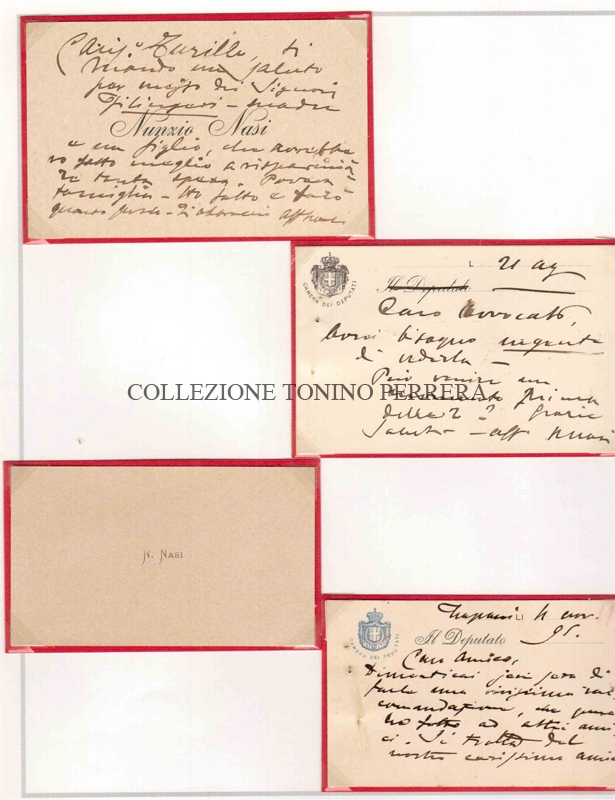 Cariss.º Turillo, ti
mando un saluto
per mezzo dei Signori
Filingeri - madre
Nunzio Nasi
e un figlio, che avrebbe
ro fatto meglio a risparmia
re tanta spesa. Povera
famiglia - Ho fatto e farò
quanto posso - Ti abbraccio aff Nasi
21 Ag
CAMERA DEI DEPUTATI
Il Deputato
Caro Avvocato,
Avrei bisogno urgente
di vederla -
Può venire un
prima
delle 2? Grazie
Saluti - aff NNasi
COLLEZIONE TONINO PERRERA
N. NASI
Trapani, LI
95.
CAMERA DEI DEPUTATI
Il Deputato
Caro Amico,
Dimenticai jeri sera di
farle una vivissima rac
comandazione, che pure
ho fatto ad altri ami
ci. Si tratta del
nostro carissimo amico